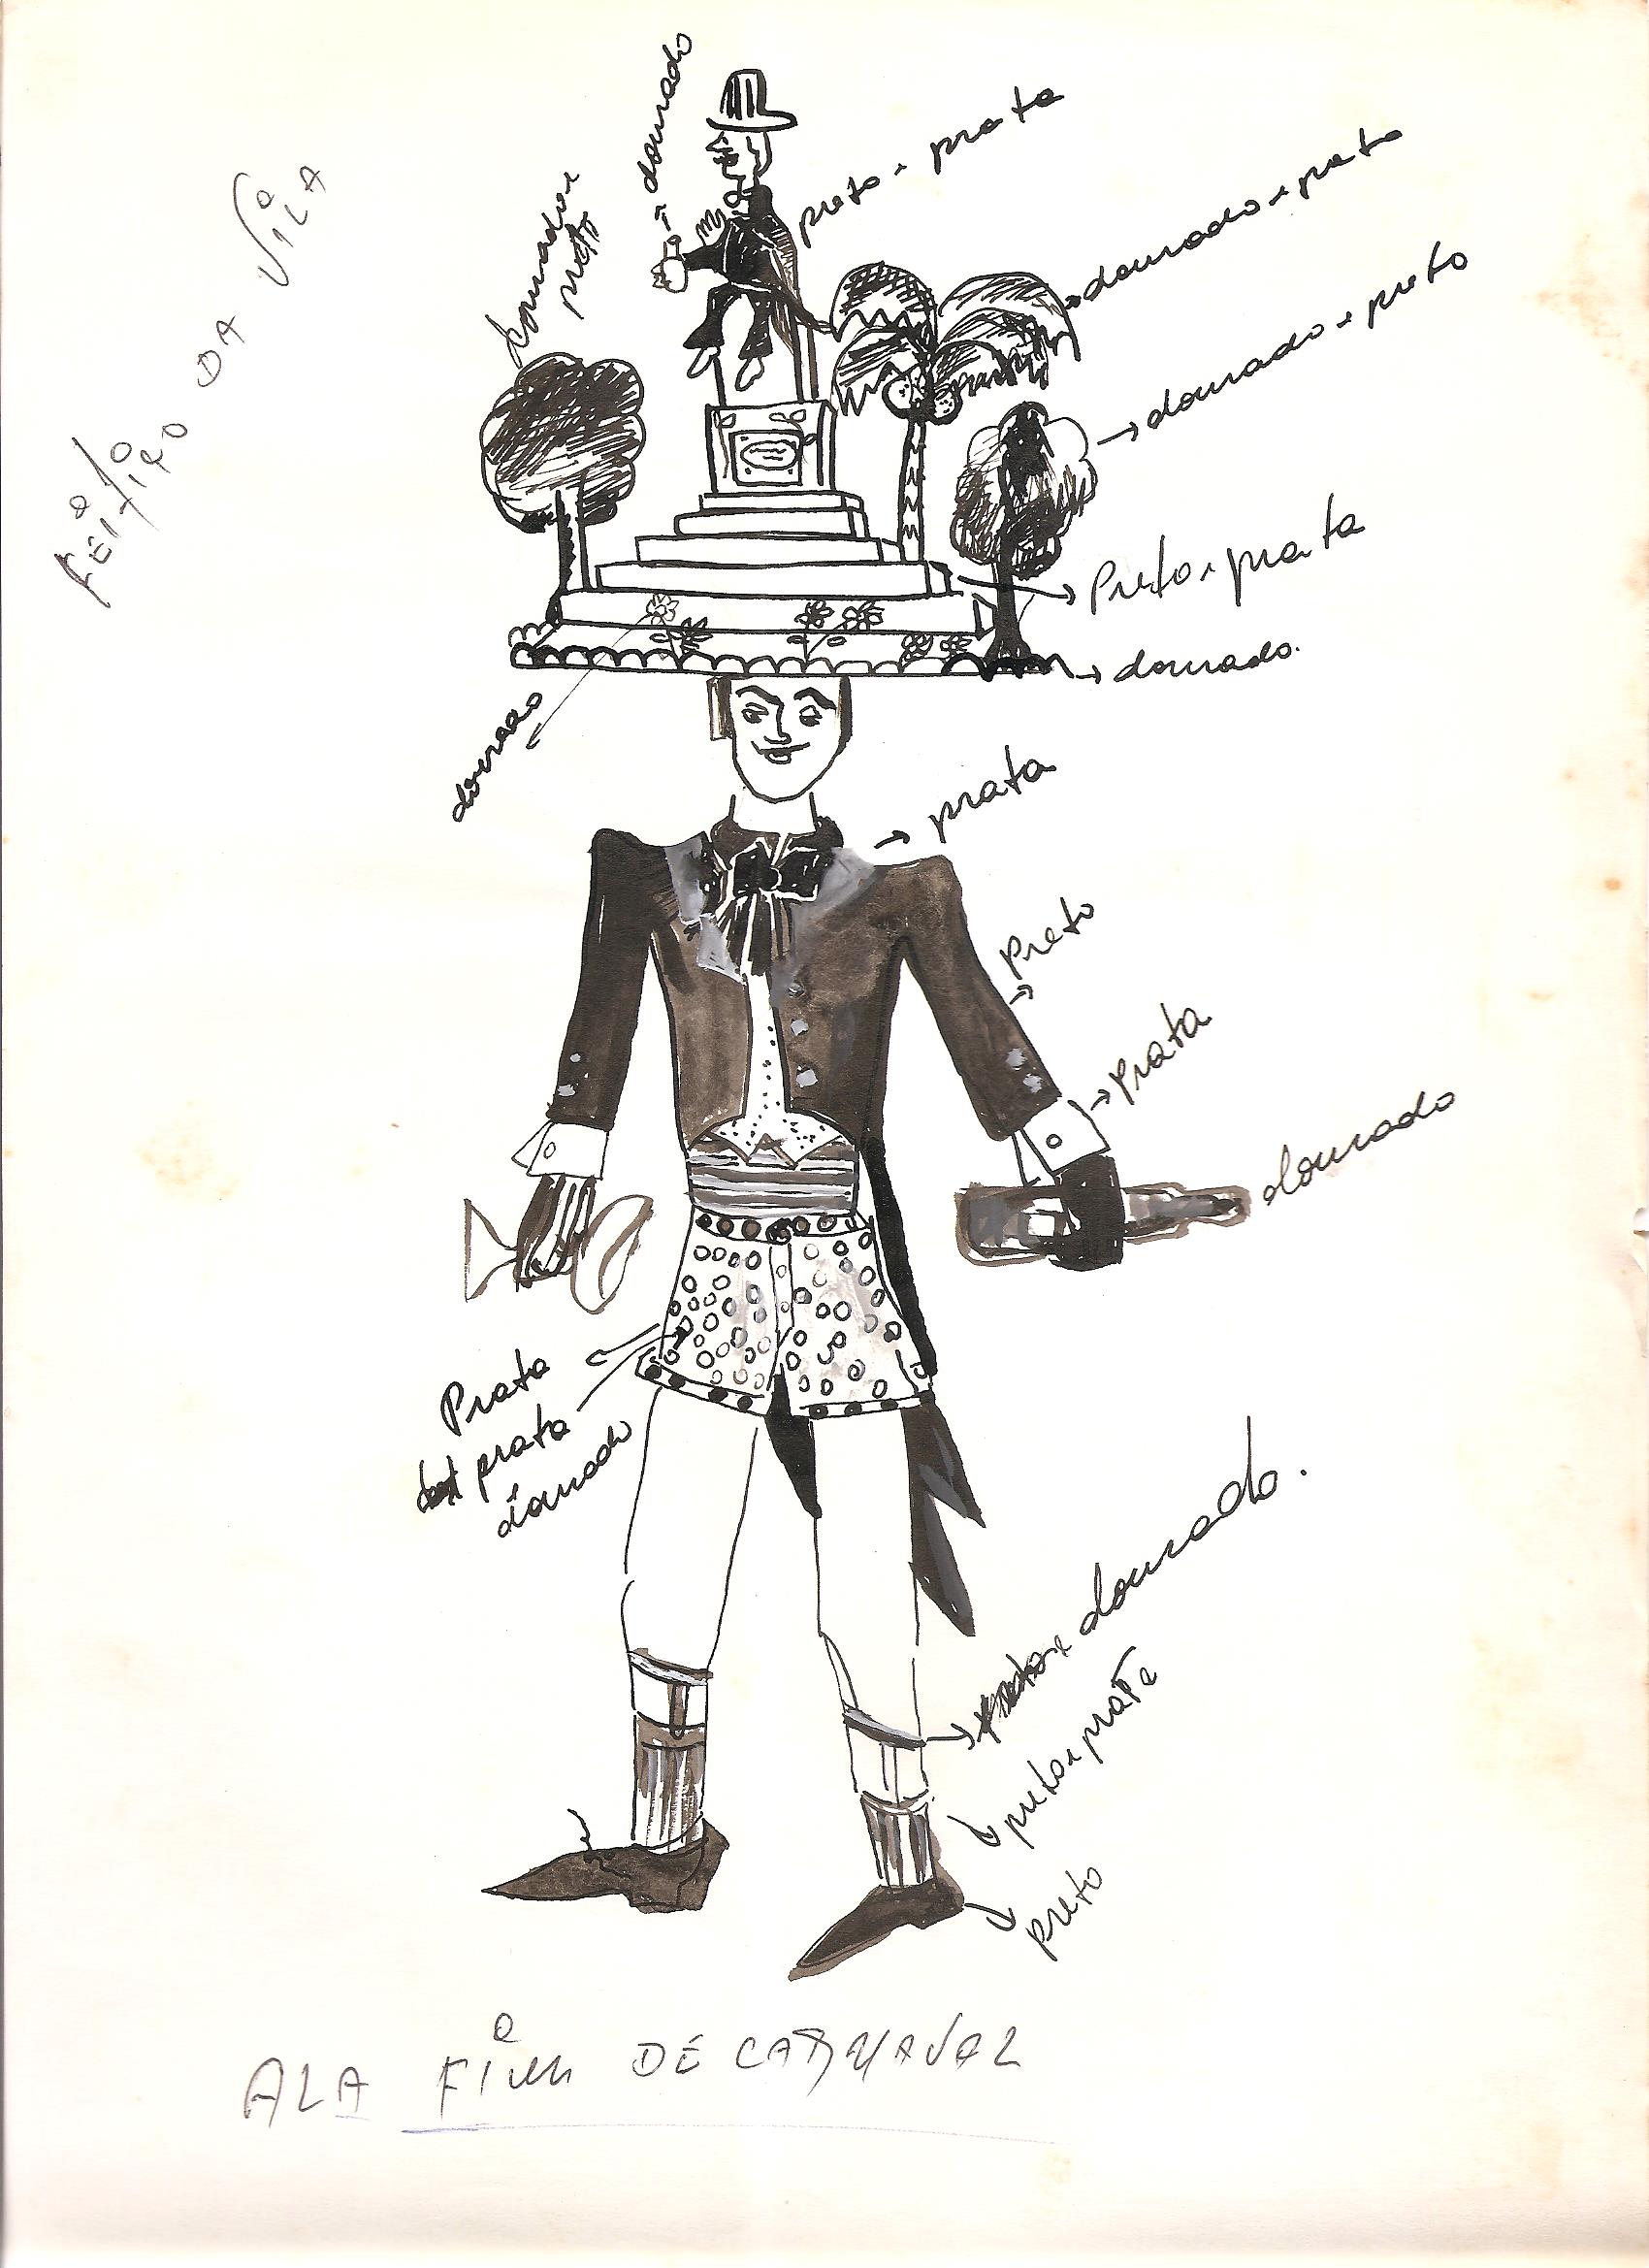 FEITIÇO DA VILA
dourado
dourado e
preto
preto e prata
dourado e preto
dourado e preto
Preto e prata
dourado
dourado
prata
Preto
prata
dourado
Prata
prata
dourado
dourado.
preto e prata
preto
ALA FIM DE CARNAVAL